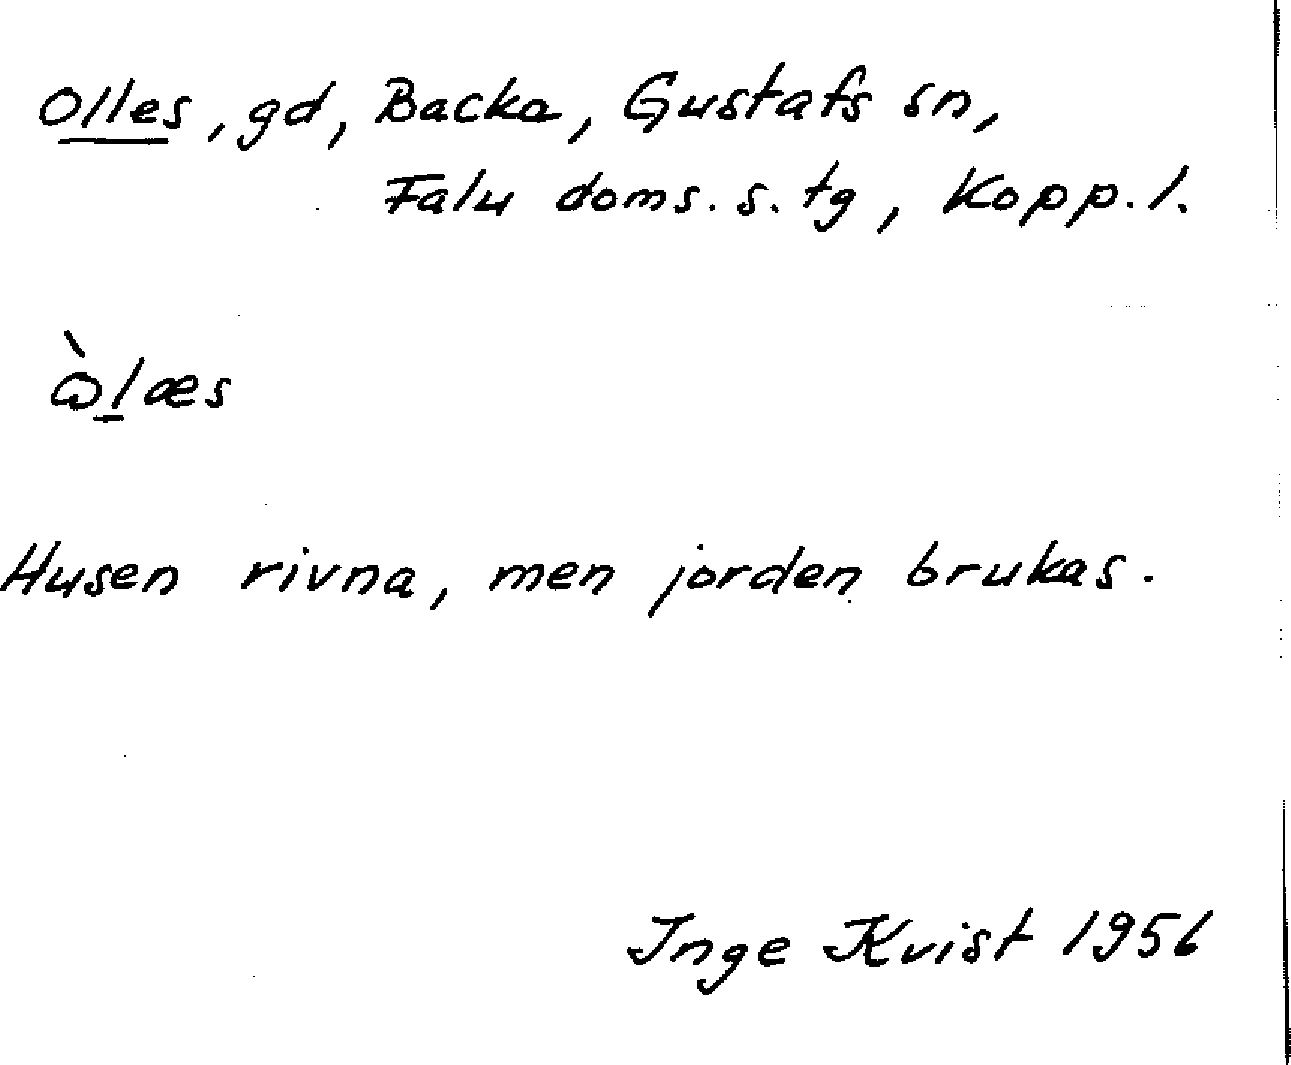 Olles, gd, Backa, Gustafs sn,
Falu doms. s. tg, Kopp. l.
òlæs
Husen rivna, men jorden brukas.
Inge Kvist 1956